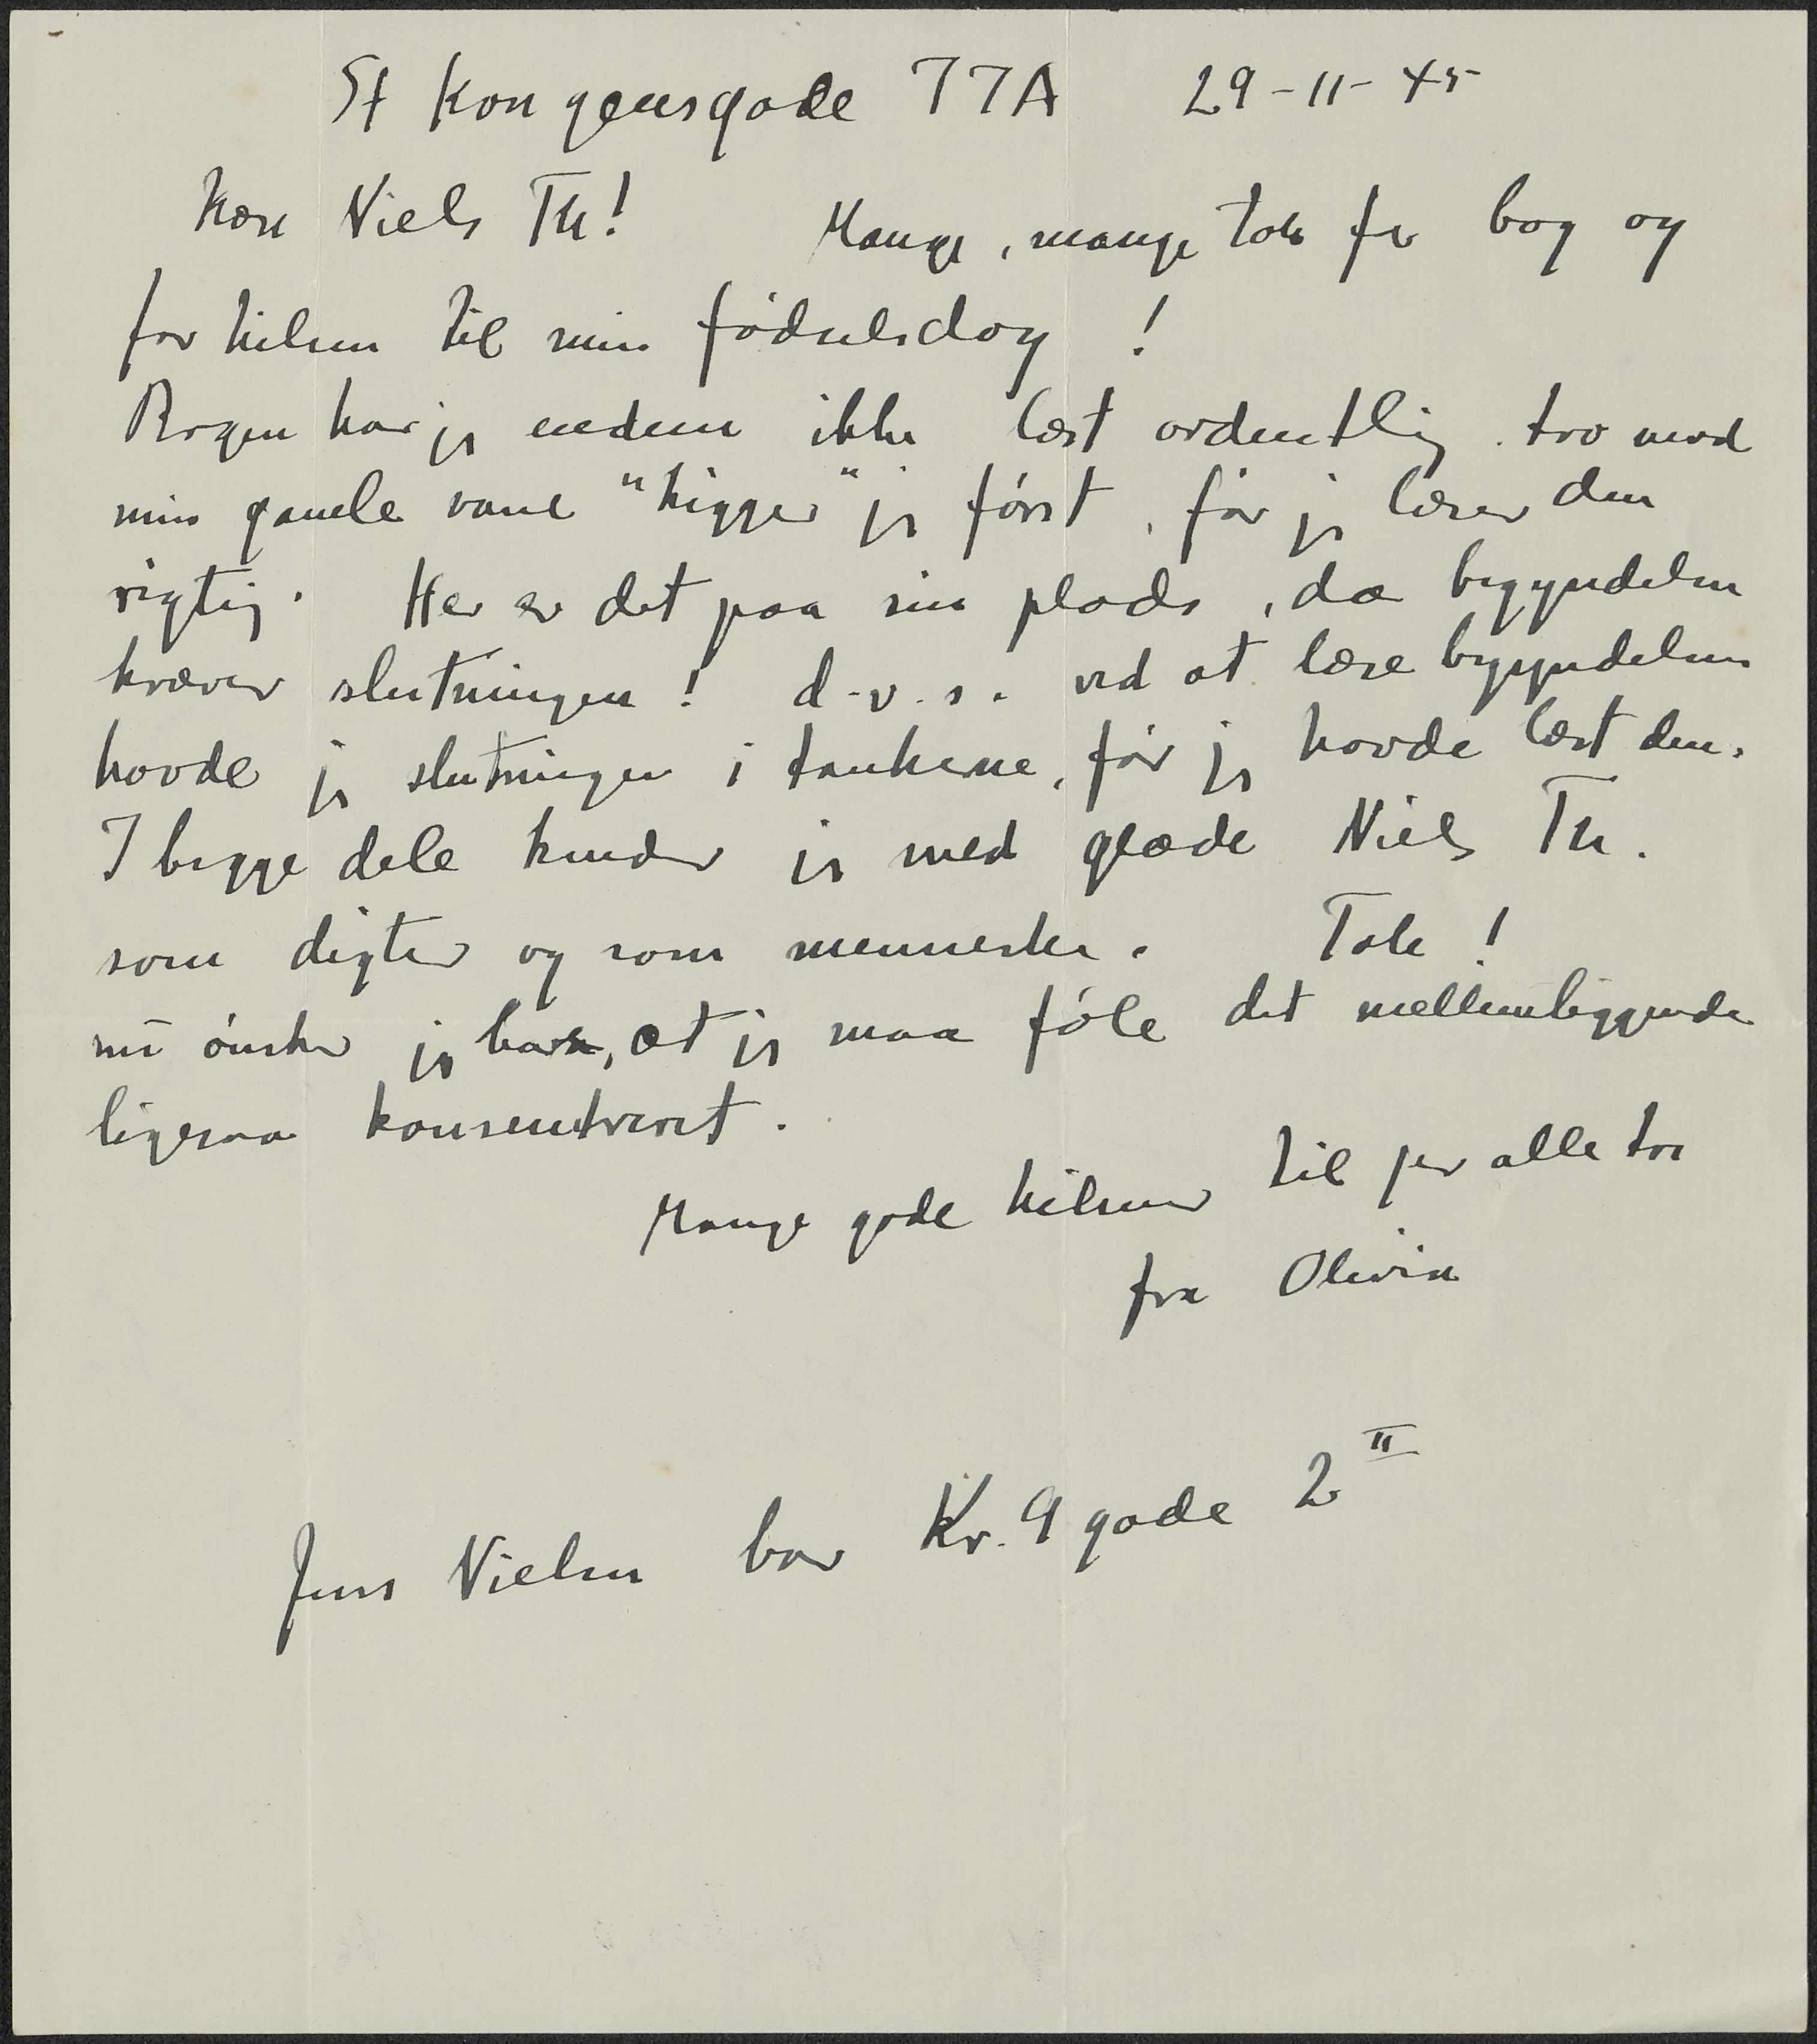 St Kongensgade 77A 29-11-45
Kære Niels Th! Mange, mange tak for bog og
for hilsen til min fødselsdag!
Bogen har jeg endnu ikke læst ordentlig. tro mod
min gamle vane "kigger" jeg først, før jeg læser den
rigtig. Her er det paa sin plads, da begyndelsen
kræver slutningen! d.v.s. ved at læse begyndelsen
havde jeg slutningen i tankerne, før jeg havde læst den.
I begge dele kender jeg med glæde Niels Th.
som digter og som menneske. Tak!
nu ønsker jeg bare, at jeg maa føle det mellemliggende
ligesaa konsentreret.
Mange gode hilsner til jer alle tre
fra Olivia
Jens Nielsen bor Kr. 9 gade 2 II